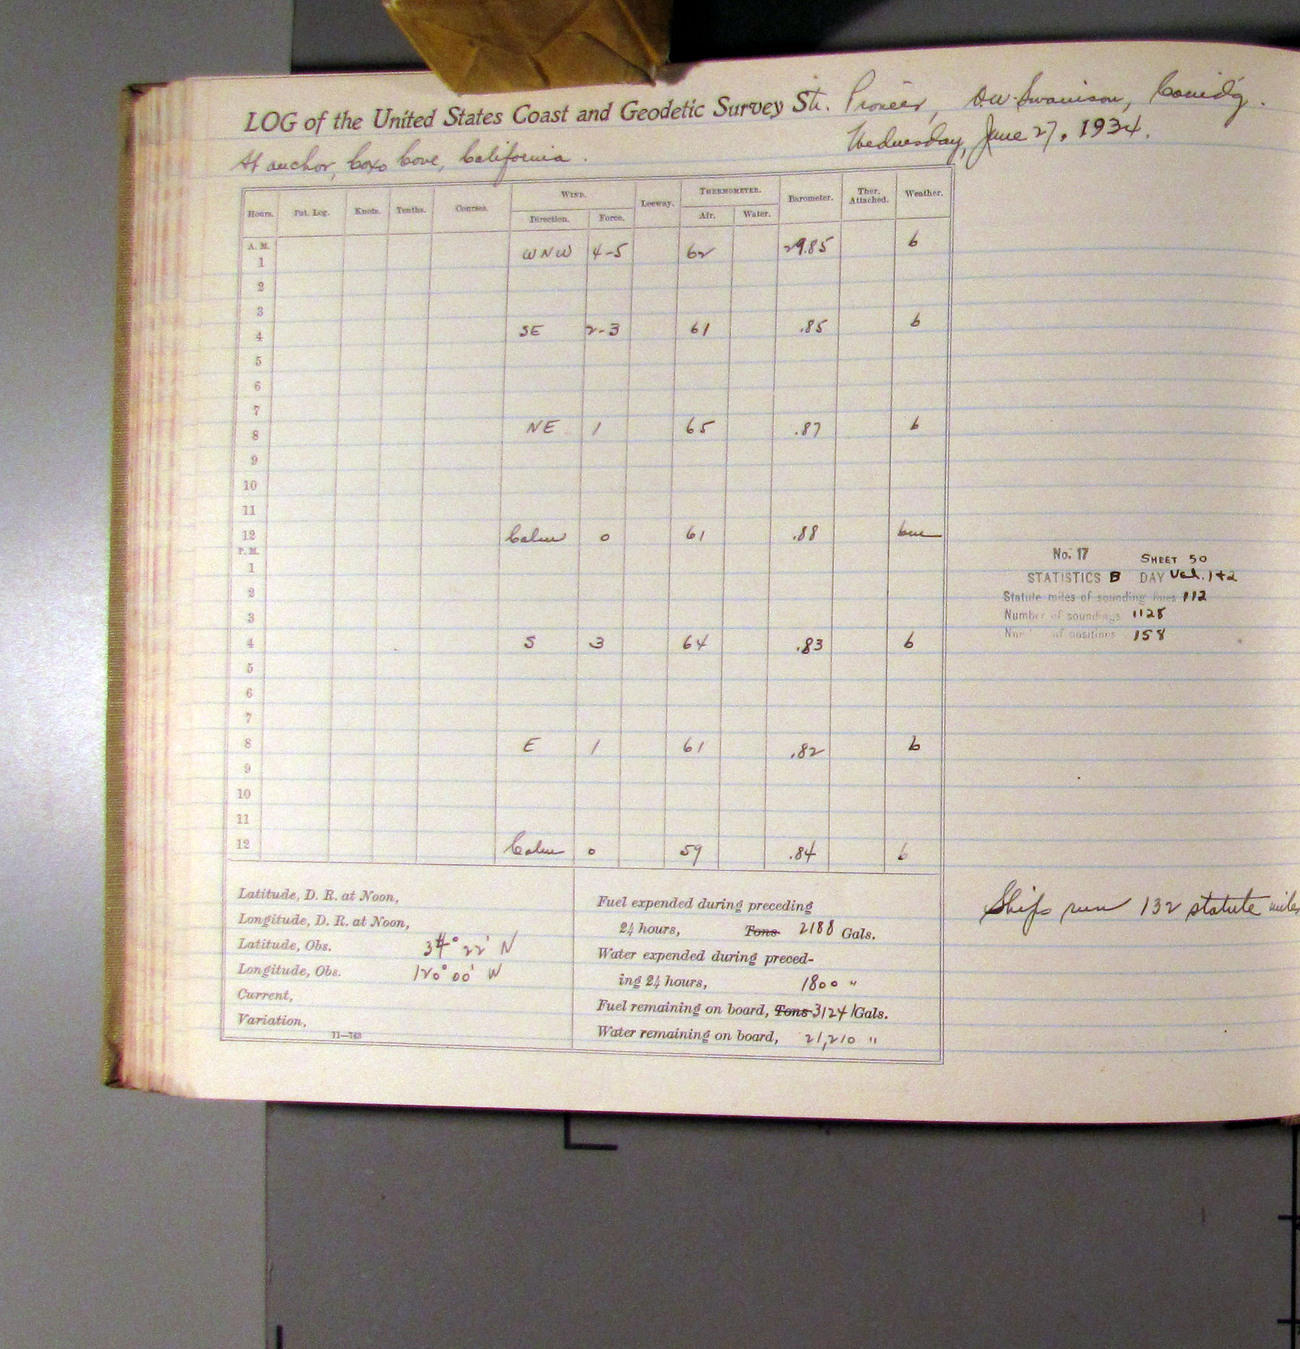 LOG of the United States Coast and Geodetic Survey Str. Pioneer, O.W. Swainson, Comd'g.
At anchor, Coxo Cove, California. Wednesday, June 27, 1934.
Hours. Pat. Log. Knots. Tenths. Courses. WIND. Leeway. THERMOMETER. Barometer. Ther. Attached. Weather.
Direction. Force. Air. Water.
A. M.
1 WNW 4-5 62 29.85 b
2
3
4 SE 2-3 61 .85 b
5
6
7
8 NE 1 65 .87 b
9
10
11
12 Calm 0 61 .88 bm
P. M.
1
2
3
4 S 3 64 .83 b
5
6
7
8 E 1 61 .82 b
9
10
11
12 Calm 0 59 .84 b
No. 17 SHEET 50
STATISTICS B DAY Vol. 1+2
Statute miles of sounding lines 112
Number of soundings 1128
of positions 158
Ships run 132 statute miles
Latitude, D. R. at Noon,
Longitude, D. R. at Noon,
Latitude, Obs. 34° 22' N
Longitude, Obs. 120° 00' W
Current,
Variation,
11—763
Fuel expended during preceding
24 hours, Tons 2188 Gals.
Water expended during preced-
ing 24 hours, 1800 "
Fuel remaining on board, Tons 31241 Gals.
Water remaining on board, 21,210 "